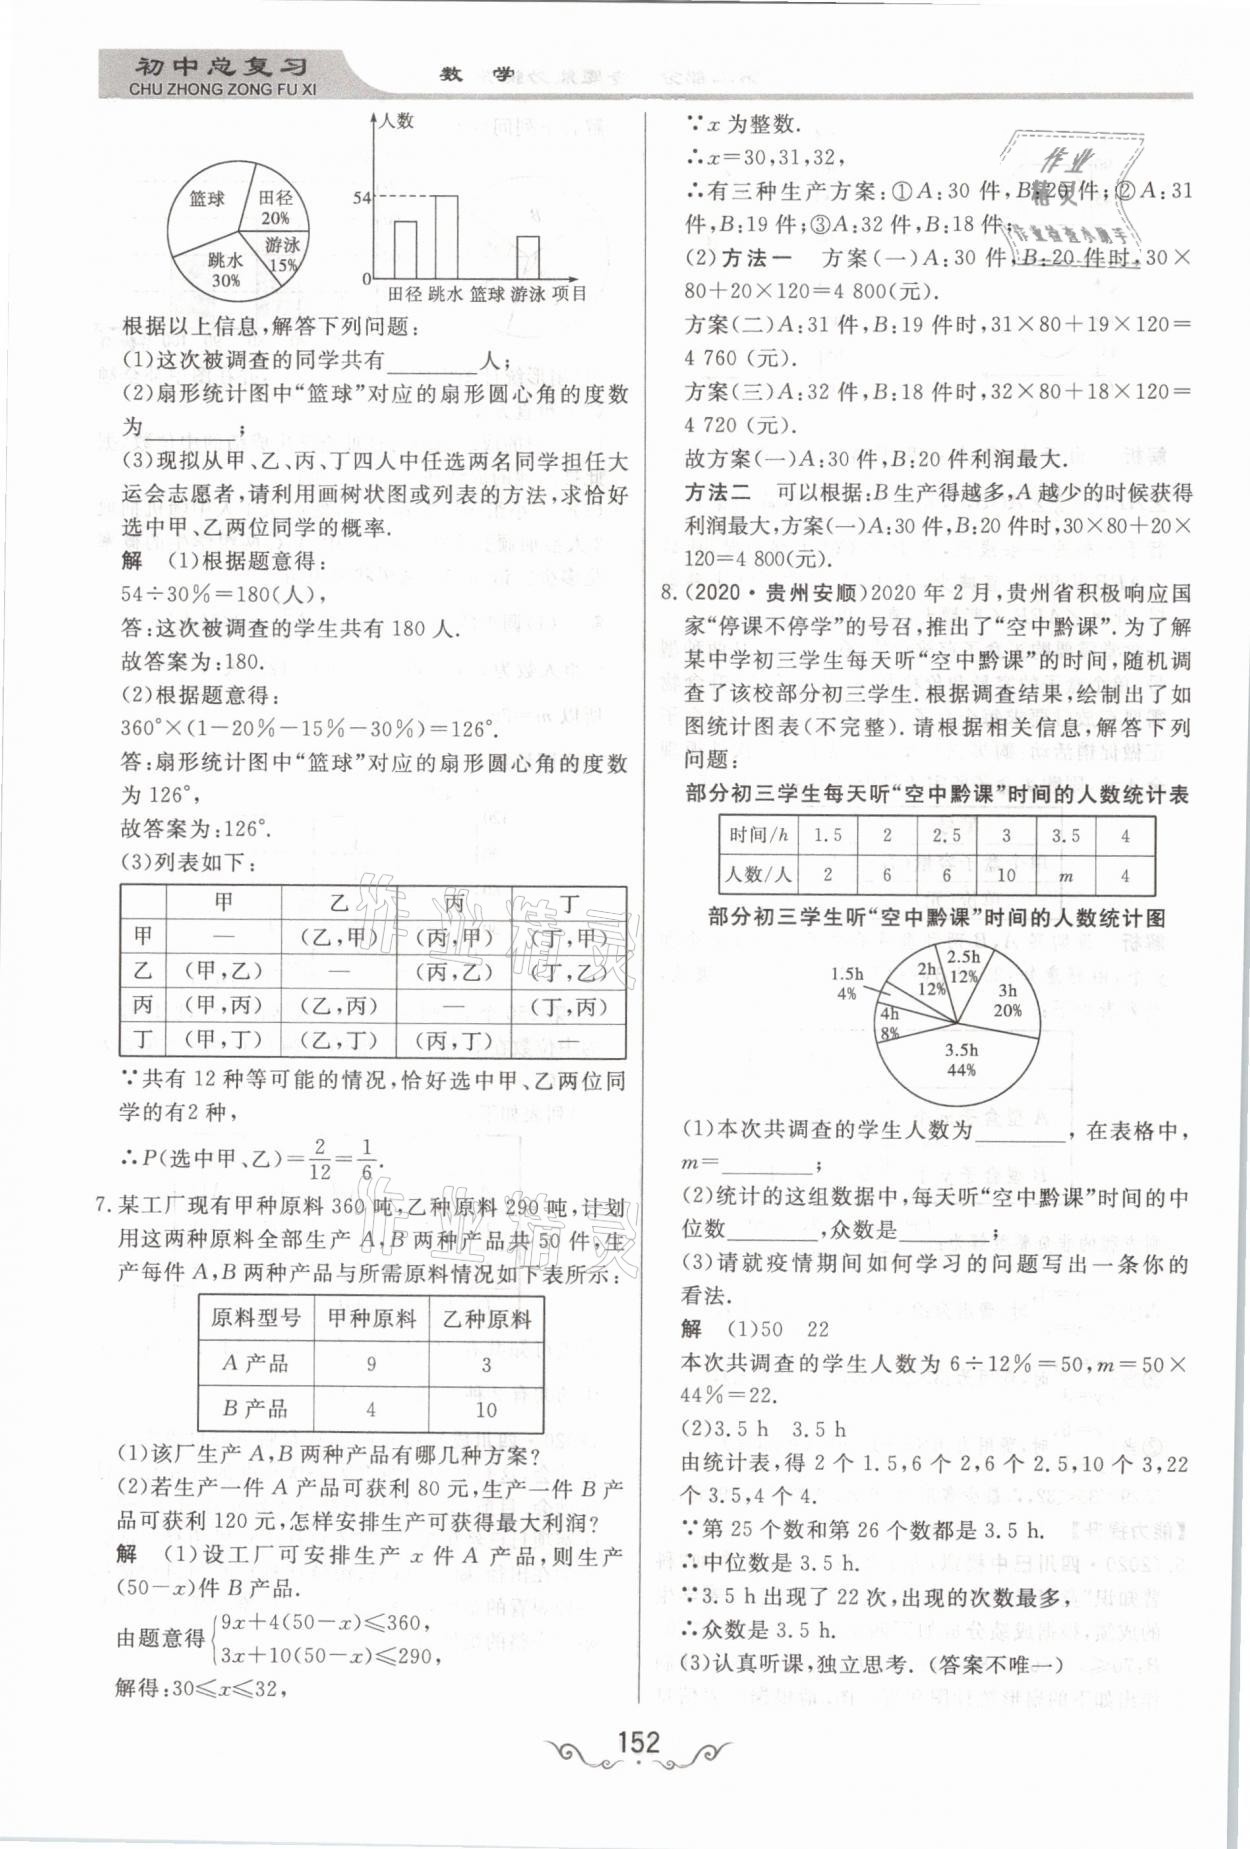 初中总复习
CHU ZHONG ZONG FU XI
数 学
人数
54
0
田径 跳水 篮球 游泳 项目
篮球
田径
20%
游泳
15%
跳水
30%
根据以上信息,解答下列问题:
(1)这次被调查的同学共有________人;
(2)扇形统计图中“篮球”对应的扇形圆心角的度数
为        ;
(3)现拟从甲、乙、丙、丁四人中任选两名同学担任大
运会志愿者,请利用画树状图或列表的方法,求恰好
选中甲、乙两位同学的概率.
解 (1)根据题意得:
54÷30%=180(人),
答:这次被调查的学生共有 180 人.
故答案为:180.
(2)根据题意得:
360°×(1-20%-15%-30%)=126°.
答:扇形统计图中“篮球”对应的扇形圆心角的度数
为 126°,
故答案为:126°.
(3)列表如下:
甲 乙 丙 丁
甲 — (乙,甲) (丙,甲) (丁,甲)
乙 (甲,乙) — (丙,乙) (丁,乙)
丙 (甲,丙) (乙,丙) — (丁,丙)
丁 (甲,丁) (乙,丁) (丙,丁) —
∵共有 12 种等可能的情况,恰好选中甲、乙两位同
学的有2 种,
∴P(选中甲、乙)=2/12=1/6.
7. 某工厂现有甲种原料 360 吨,乙种原料 290 吨,计划
用这两种原料全部生产 A,B 两种产品共 50 件,生
产每件 A,B 两种产品与所需原料情况如下表所示:
原料型号 甲种原料 乙种原料
A 产品 9 3
B 产品 4 10
(1)该厂生产 A,B 两种产品有哪几种方案?
(2)若生产一件 A 产品可获利 80 元,生产一件 B 产
品可获利 120 元,怎样安排生产可获得最大利润?
解 (1)设工厂可安排生产 x 件 A 产品,则生产
(50-x)件 B 产品.
由题意得{9x+4(50-x)≤360,
3x+10(50-x)≤290,
解得:30≤x≤32,
∵x 为整数.
∴x=30,31,32,
∴有三种生产方案:①A:30 件,B:20 件;②A:31
件,B:19 件;③A:32 件,B:18 件;
(2)方法一 方案(一)A:30 件,B:20 件时,30×
80+20×120=4 800(元).
方案(二)A:31 件,B:19 件时,31×80+19×120=
4 760 (元).
方案(三)A:32 件,B:18 件时,32×80+18×120=
4 720 (元).
故方案(一)A:30 件,B:20 件利润最大.
方法二 可以根据:B 生产得越多,A 越少的时候获得
利润最大,方案(一)A:30 件,B:20 件时,30×80+20×
120=4 800(元).
8. (2020·贵州安顺)2020 年 2 月,贵州省积极响应国
家“停课不停学”的号召,推出了“空中黔课”.为了解
某中学初三学生每天听“空中黔课”的时间,随机调
查了该校部分初三学生.根据调查结果,绘制出了如
图统计图表(不完整).请根据相关信息,解答下列
问题:
部分初三学生每天听“空中黔课”时间的人数统计表
时间/h 1.5 2 2.5 3 3.5 4
人数/人 2 6 6 10 m 4
部分初三学生听“空中黔课”时间的人数统计图
1.5h
4%
2h
12%
2.5h
12%
3h
20%
4h
8%
3.5h
44%
(1)本次共调查的学生人数为________,在表格中,
m=________;
(2)统计的这组数据中,每天听“空中黔课”时间的中
位数________,众数是________;
(3)请就疫情期间如何学习的问题写出一条你的
看法.
解 (1)50 22
本次共调查的学生人数为 6÷12%=50,m=50×
44%=22.
(2)3.5 h 3.5 h
由统计表,得 2 个 1.5,6 个 2,6 个 2.5,10 个 3,22
个 3.5,4 个 4.
∵第 25 个数和第 26 个数都是 3.5 h.
∴中位数是 3.5 h.
∵3.5 h 出现了 22 次,出现的次数最多,
∴众数是 3.5 h.
(3)认真听课,独立思考.(答案不唯一)
152
作业精灵
作业精灵
作业
精灵
作业检查小助手